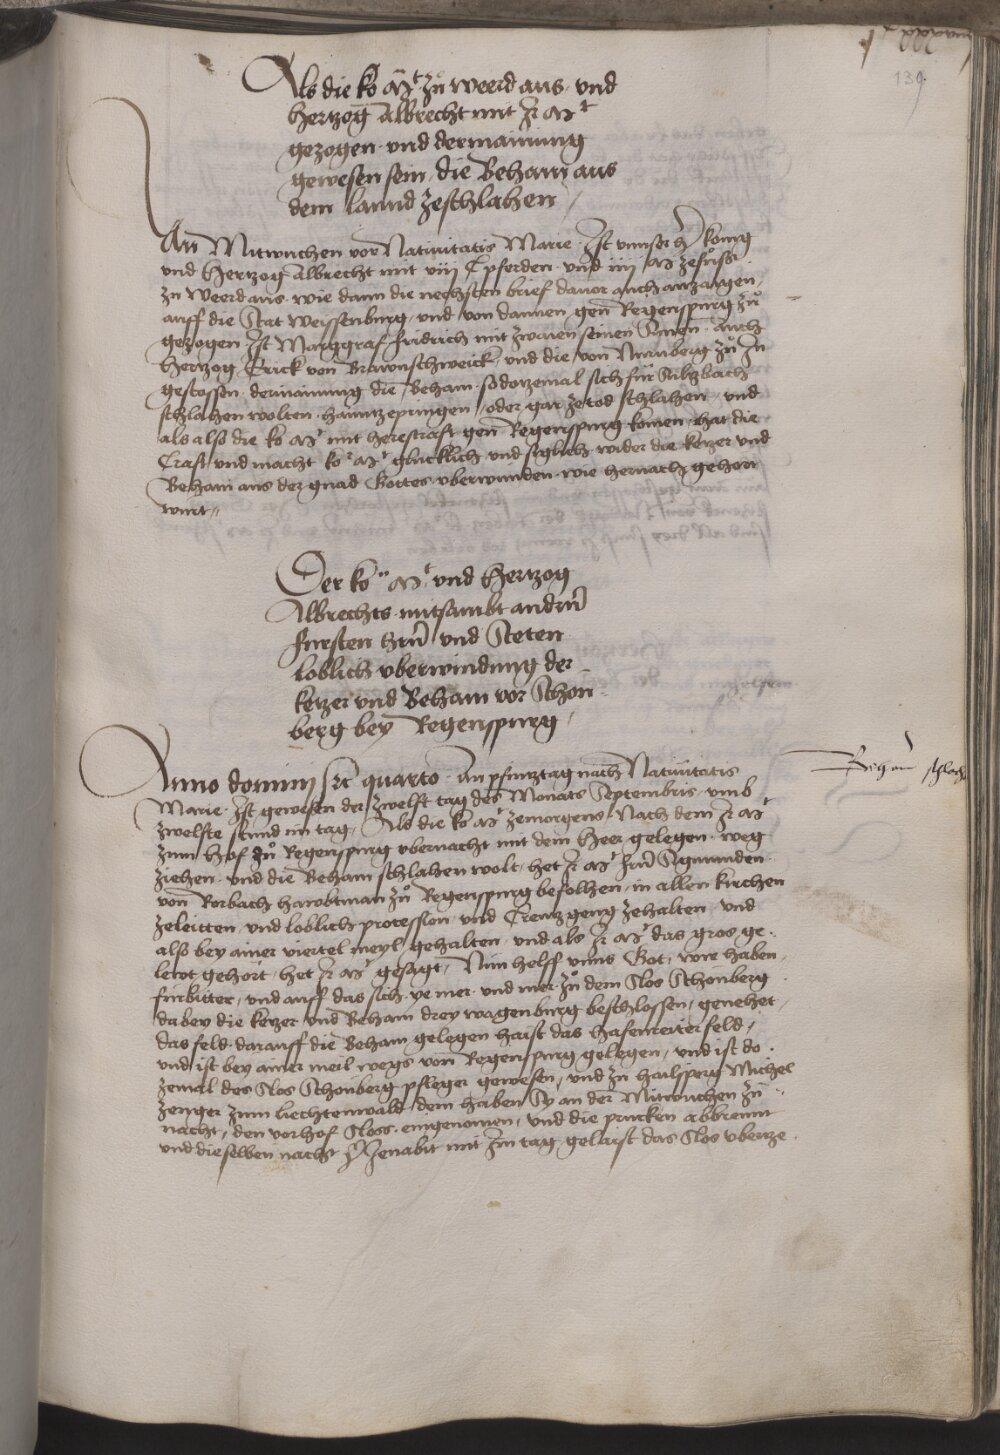 139
Als die ko Mt zu Weerd aus und
Hertzog Albrecht mit Ir Mt
gezogen und der mainung
gewesen sein, die Beham aus
dem lannd zeschlahen
An Mitwuchen vor Nativitatis Marie Ist unnser h könig
und Hertzog Albrecht mit viij C pferden und iiij M zefuss
zu Weerd aus wie dann die nechsten brief davor auch anzaigen,
auff die Stat Weissenburg, und von dannen gen Regenspurg zu
gezogen Ist Marggraf Fridrich mit zwaien seinen Sünen auch
Hertzog Erick von Brawnschweick und die von Nurmberg zu In
gestossen der mainung die Beham so dotzemal sich für Sulzbach
schlahen wolten haimtzepringen, oder gar zetod schlahen und
als also die ko Mt mit herescraft gen Regenspurg komen, hat die
Craft und macht ko Mt glucklich und siglich wider die ketzer und
Beham aus der gnad Gottes uberwunden wie hernach gehort
wirt
Der ko Mt und Hertzog
Albrechts mitsambt andern
fursten hrn und Steten
loblich uberwindung der
ketzer und Beham vor Schon
berg bey Regenspurg
Anno domini etc quarto An pfintztag nach Nativitatis
Marie Ist gewesen der zwelft tag des Monats Septembris umb
zwelfte stund im tag, Als die ko Mt zemorgens Nach dem Ir Mt
zum hof zu Regenspurg ubernacht mit dem Heer gelegen weg
ziehen und die Beham schlahen wolt, het Ir Mt hrn Sigmunden
von Rorbach hawbtman zu Regenspurg befolhen in allen kirchen
zeleitten, und loblich procession und Creutzgeng zehalten und
also bey ainer viertel meyl gehalten und als Ir Mt das gros ge
lewt gehört, het Ir Mt gesagt, Nun helff unns Got, wir haben
furbitter, und auff das sich ye mer und mer zu dem Slos Schonberg
dabey die ketzer und Beham drey wagenburg beschlossen, genehet,
das feld darauff die Beham gelegen haist das Hafenreiter feld,
und ist bey ainer meil wegs von Regenspurg gelegen, und ist do
zemal des Slos Schonberg pfleger gewesen, und zu hailsperg Michel
Zennger zum liechtenwald, dem haben Sy an der Mitwuchen zu
nacht, den vorhof Sloss eingenomen, und die prucken abbrennt
und dieselben nacht mit Im tag gelaist das Slos uberze
Beham schlacht